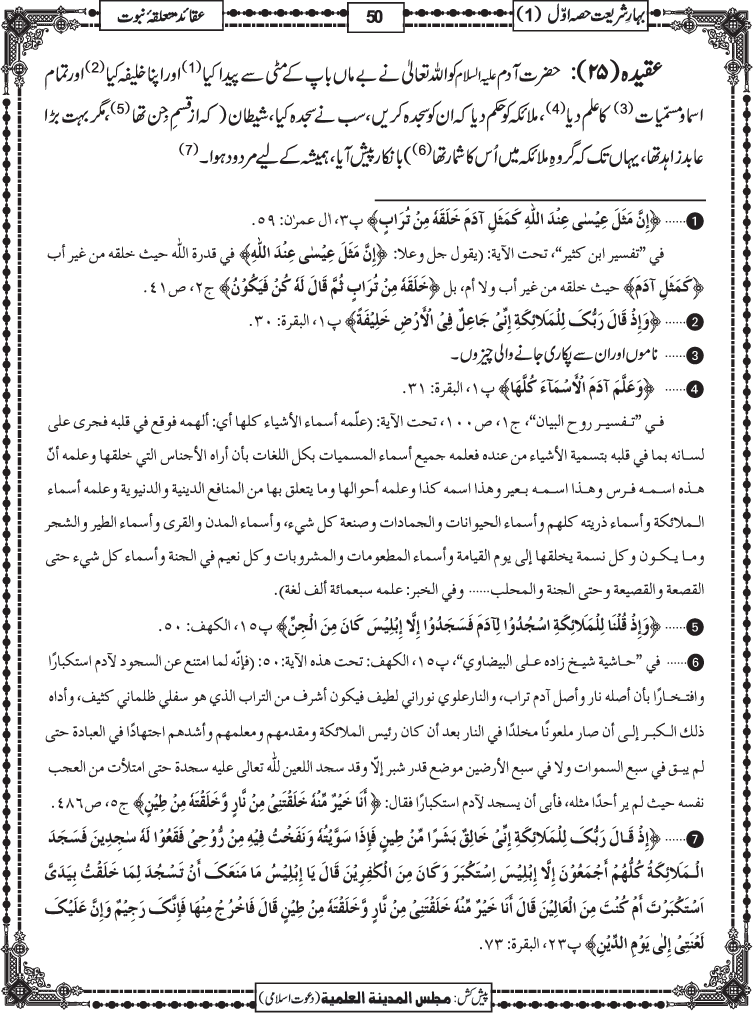 بہارِ شریعت حصہ اوّل (1)
50
عقائد متعلقۂ نبوت
عقیدہ (۲۵): حضرت آدم علیہ السلام کو اللہ تعالیٰ نے بے ماں باپ کے مٹی سے پیدا کیا (1) اور اپنا خلیفہ کیا (2) اور تمام
اسما و مسمّیات (3) کا علم دیا (4)، ملائکہ کو حکم دیا کہ ان کو سجدہ کریں، سب نے سجدہ کیا، شیطان (کہ از قسمِ جِن تھا (5)، مگر بہت بڑا
عابد زاہد تھا، یہاں تک کہ گروہِ ملائکہ میں اُس کا شمار تھا (6)) بانکار پیش آیا، ہمیشہ کے لیے مردود ہوا۔ (7)
1 ...... ﴿إِنَّ مَثَلَ عِيْسٰى عِنْدَ اللّٰهِ كَمَثَلِ آدَمَ خَلَقَهٗ مِنْ تُرَابٍ﴾ پ٣، اٰل عمرٰن: ٥٩.
في ”تفسير ابن كثير“، تحت الآية: (يقول جل وعلا: ﴿إِنَّ مَثَلَ عِيْسٰى عِنْدَ اللّٰهِ﴾ في قدرة الله حيث خلقه من غير أب
﴿كَمَثَلِ آدَمَ﴾ حيث خلقه من غير أب ولا أم، بل ﴿خَلَقَهٗ مِنْ تُرَابٍ ثُمَّ قَالَ لَهٗ كُنْ فَيَكُوْنُ﴾ ج٢، ص٤١.
2 ...... ﴿وَإِذْ قَالَ رَبُّكَ لِلْمَلَائِكَةِ إِنِّىْ جَاعِلٌ فِى الْأَرْضِ خَلِيْفَةً﴾ پ١، البقرة: ٣٠.
3 ...... ناموں اور ان سے پکاری جانے والی چیزوں۔
4 ...... ﴿وَعَلَّمَ آدَمَ الْأَسْمَآءَ كُلَّهَا﴾ پ١، البقرة: ٣١.
فـي ”تـفـسيـر روح البيان“، ج١، ص١٠٠، تحت الآية: (علّمه أسماء الأشياء كلها أي: ألهمه فوقع في قلبه فجرى على
لسـانه بما في قلبه بتسمية الأشياء من عنده فعلمه جميع أسماء المسميات بكل اللغات بأن أراه الأجناس التي خلقها وعلمه أنّ
هـذه اسمـه فـرس وهـذا اسـمـه بعير وهذا اسمه كذا وعلمه أحوالها وما يتعلق بها من المنافع الدينية والدنيوية وعلمه أسماء
الـملائكة وأسماء ذريته كلهم وأسماء الحيوانات والجمادات وصنعة كل شيء، وأسماء المدن والقرى وأسماء الطير والشجر
ومـا يـكـون وكل نسمة يخلقها إلى يوم القيامة وأسماء المطعومات والمشروبات وكل نعيم في الجنة وأسماء كل شيء حتى
القصعة والقصيعة وحتى الجنة والمحلب...... وفي الخبر: علمه سبعمائة ألف لغة).
5 ...... ﴿وَإِذْ قُلْنَا لِلْمَلَائِكَةِ اسْجُدُوْا لِآدَمَ فَسَجَدُوْا إِلَّا إِبْلِيْسَ كَانَ مِنَ الْجِنِّ﴾ پ١٥، الكهف: ٥٠.
6 ...... في ”حـاشية شيـخ زاده عـلـى البيضاوي“، پ١٥، الكهف: تحت هذه الآية: ٥٠: (فإنّه لما امتنع عن السجود لآدم استكبارًا
وافـتـخـارًا بأن أصله نار وأصل آدم تراب، والنارعلوي نوراني لطيف فيكون أشرف من التراب الذي هو سفلي ظلماني كثيف، وأداه
ذلك الـكبـر إلـى أن صار ملعونًا مخلدًا في النار بعد أن كان رئيس الملائكة ومقدمهم ومعلمهم وأشدهم اجتهادًا في العبادة حتى
لم يبـق في سبع السموات ولا في سبع الأرضين موضع قدر شبر إلّا وقد سجد اللعين للّٰه تعالى عليه سجدة حتى امتلأت من العجب
نفسه حيث لم ير أحدًا مثله، فأبى أن يسجد لآدم استكبارًا فقال: ﴿أَنَا خَيْرٌ مِّنْهُ خَلَقْتَنِىْ مِنْ نَّارٍ وَّخَلَقْتَهٗ مِنْ طِيْنٍ﴾ ج٥، ص٤٨٦.
7 ...... ﴿إِذْ قَـالَ رَبُّكَ لِلْمَلَائِكَةِ إِنِّىْ خَالِقٌ بَشَرًا مِّنْ طِيْنٍ فَإِذَا سَوَّيْتُهٗ وَنَفَخْتُ فِيْهِ مِنْ رُّوْحِىْ فَقَعُوْا لَهٗ سٰجِدِيْنَ فَسَجَدَ
الْـمَلَائِكَةُ كُلُّهُمْ أَجْمَعُوْنَ إِلَّا إِبْلِيْسَ اِسْتَكْبَرَ وَكَانَ مِنَ الْكٰفِرِيْنَ قَالَ يَا إِبْلِيْسُ مَا مَنَعَكَ أَنْ تَسْجُدَ لِمَا خَلَقْتُ بِيَدَىَّ
اَسْتَكْبَرْتَ أَمْ كُنْتَ مِنَ الْعَالِيْنَ قَالَ أَنَا خَيْرٌ مِّنْهُ خَلَقْتَنِىْ مِنْ نَّارٍ وَّخَلَقْتَهٗ مِنْ طِيْنٍ قَالَ فَاخْرُجْ مِنْهَا فَإِنَّكَ رَجِيْمٌ وَإِنَّ عَلَيْكَ
لَعْنَتِىْ إِلٰى يَوْمِ الدِّيْنِ﴾ پ٢٣، البقرة: ٧٣.
پیش کش: مجلس المدينة العلمية (دعوتِ اسلامی)